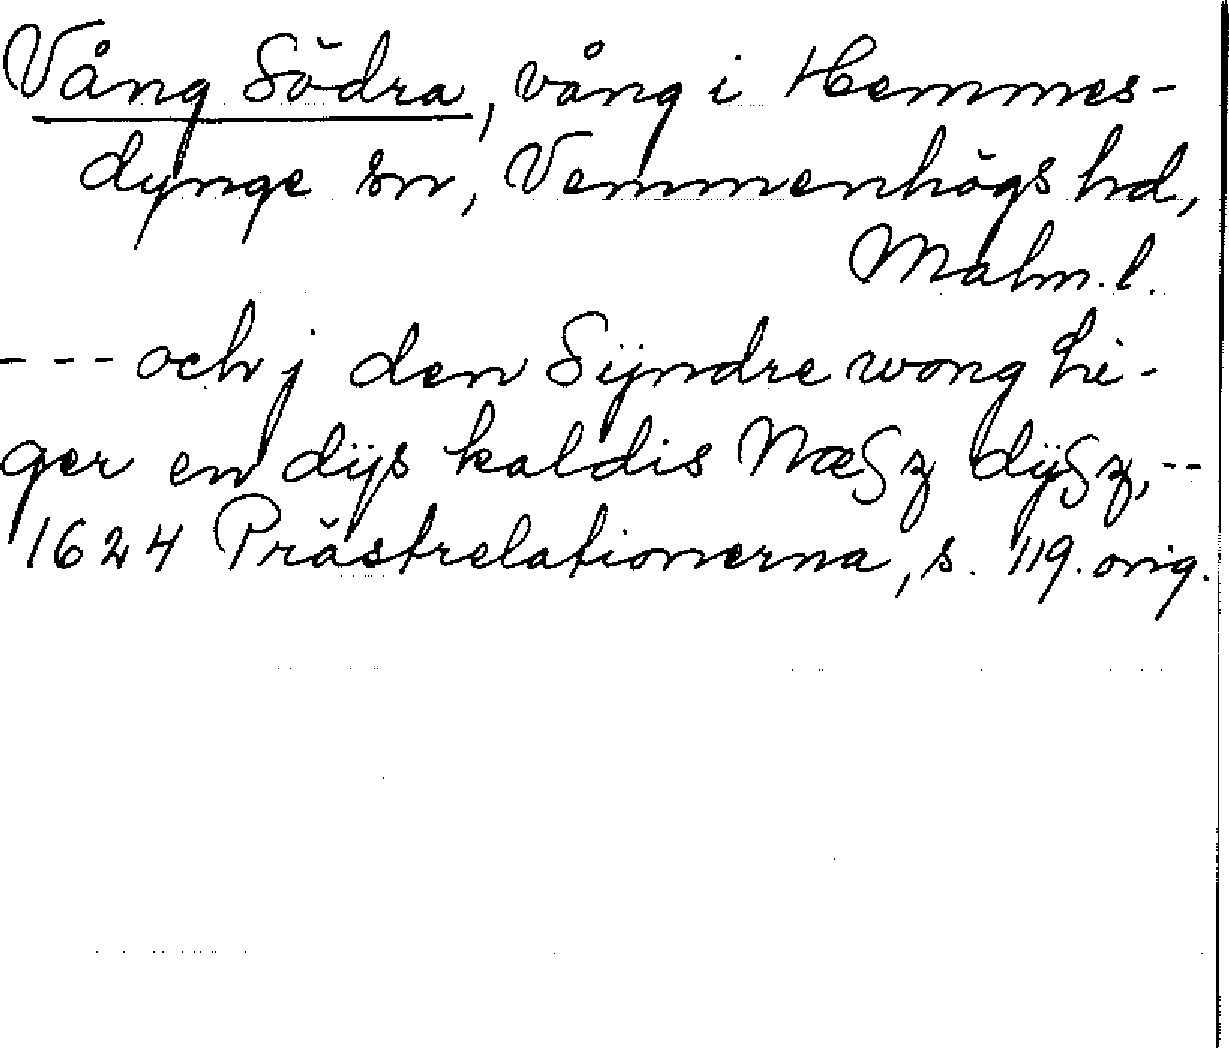 Vång Södra, vång i Hemmes-
dynge sn, Vemmenhögs hd,
Malm. l.
--- och j den Sÿndre wong li-
ger en dÿs kaldis Næsz dÿsz, --
1624 Prästrelationerna, s. 119. orig.